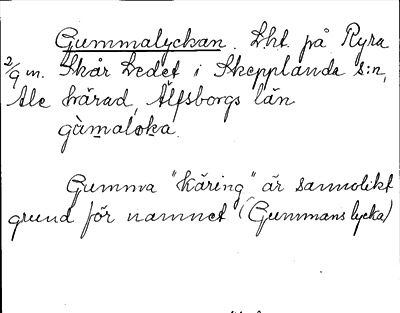 Gummalyckan. Lht. på Ryra
2/9 m. Skår Ledet i Skepplanda s:n,
Ale härad, Älfsborgs län
gàmaloka.
Gumma "Käring" är sannolikt
grund för namnet (Gummans lycka)